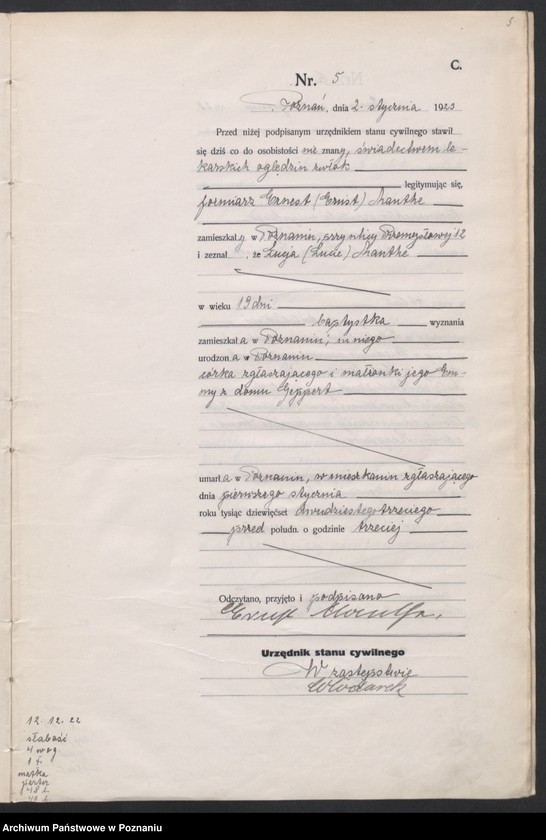 5
C.
Nr. 5
Poznań, dnia 2. stycznia 1923
Przed niżej podpisanym urzędnikiem stanu cywilnego stawił
się dziś co do osobistości nie znany, świadectwem le-
karskich oględzin zwłok
legitymując się,
formiarz Ernest (Ernst) Manthe
zamieszkały w Poznaniu, przy ulicy Przemysłowej 12
i zeznał, że Łucja (Lucie) Manthe
w wieku 19 dni
baptystka wyznania
zamieszkała w Poznaniu, u niego
urodzona w Poznaniu
córka zgłaszającego i małżonki jego Em-
my z domu Geppert
umarła w Poznaniu, w mieszkaniu zgłaszającego
dnia pierwszego stycznia
roku tysiąc dziewięćset dwudziestego trzeciego
przed połudn. o godzinie trzeciej
Odczytano, przyjęto i podpisano
Ernst Manthe.
Urzędnik stanu cywilnego
W zastępstwie
Włodarek
12. 12. 22
słabość
4 wog
1 +
matka
48 l
Archiwum Państwowe w Poznaniu